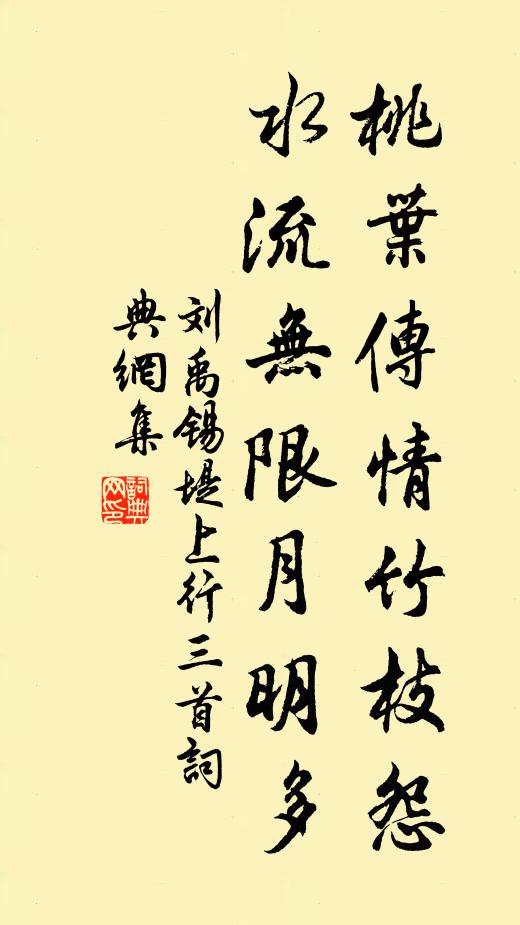 桃葉傳情竹枝怨
水流無限月明多
刘禹锡堤上行三首詞
典網集
詞典
网印